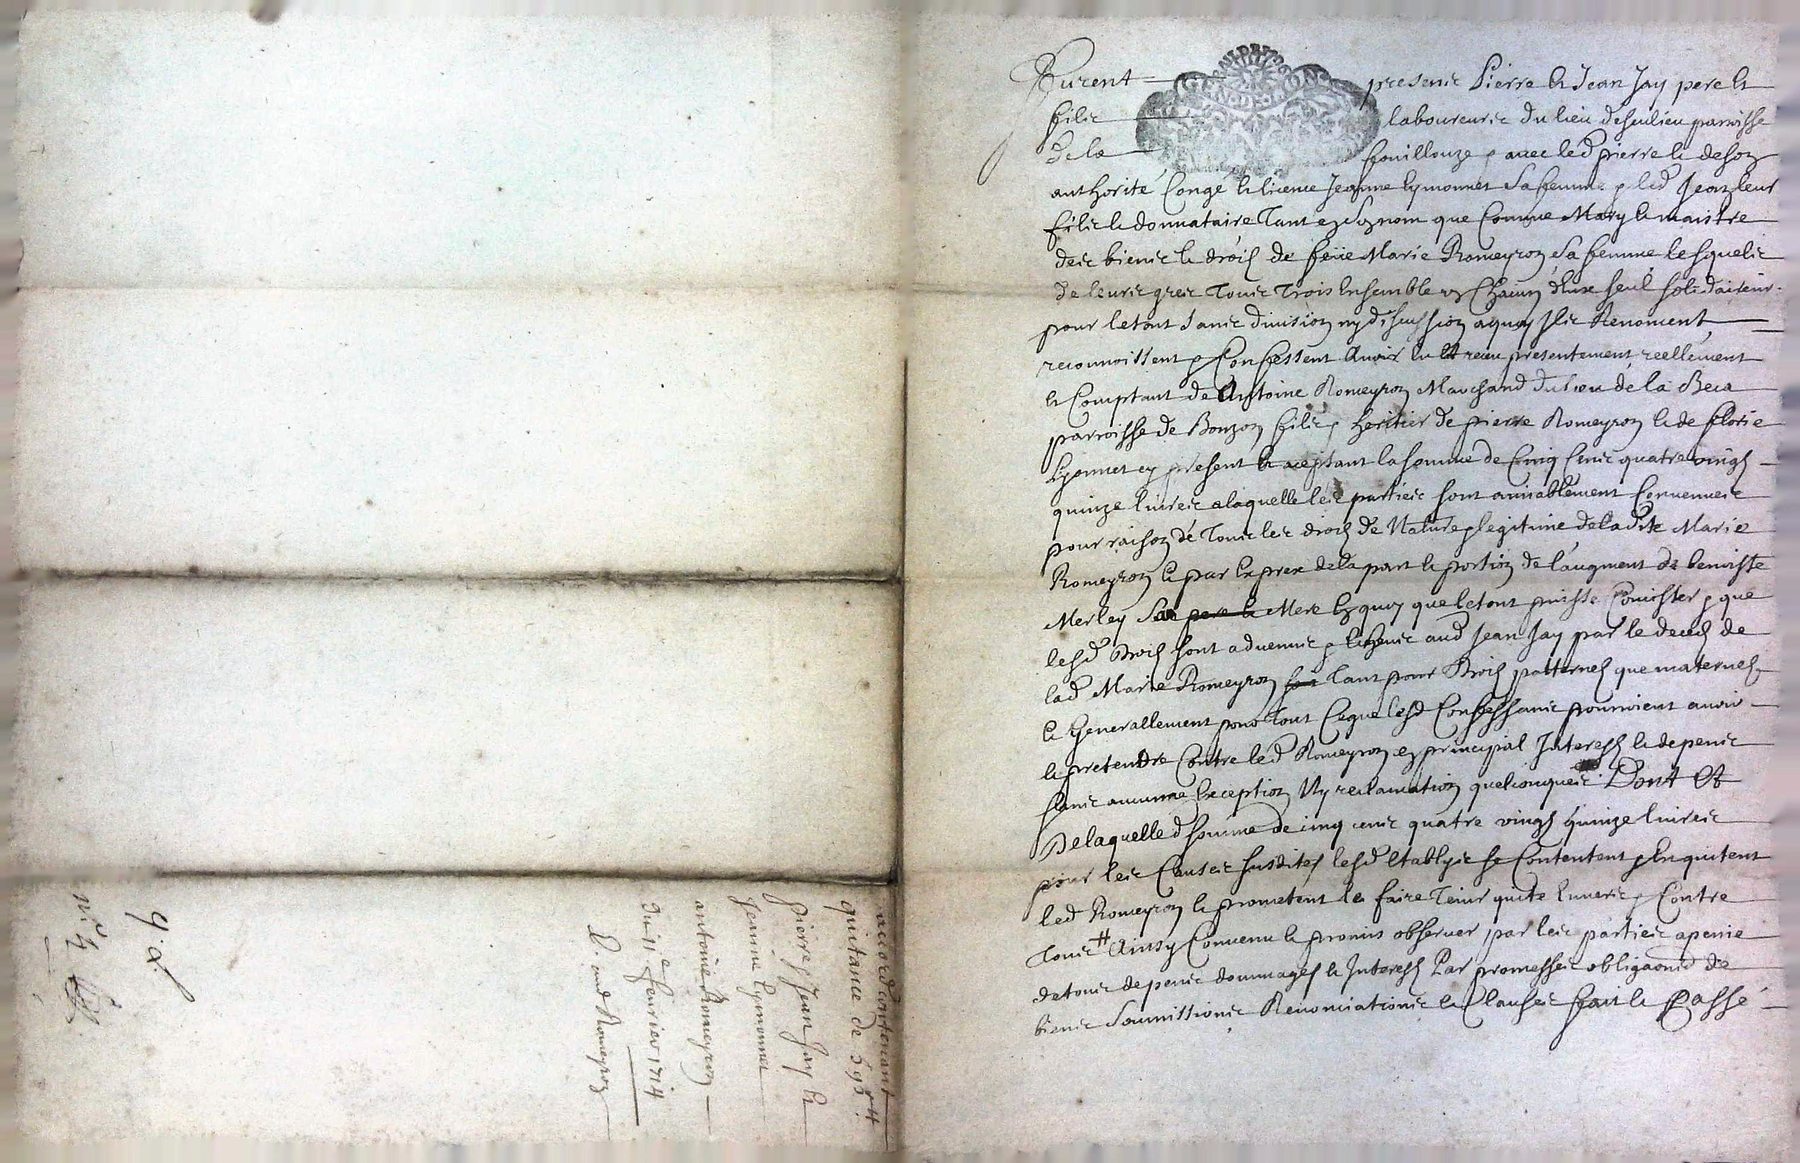 Furent presents Pierre et Jean Jay pere et
fils laboureurs du lieu de seulieu parroisse
de la fouillouze & avec led pierre et de son
authorité Congé et licence Jeanne Lymonnet sa femme & led Jean leur
fils et donnataire Tant en son nom que Comme Mary et maistre
des biens et droits de feüe Marie Romeyron sa femme lesquels
de leurs grez Tous Trois Ensemble et Chacun d'eux seul solidairemt
pour le tout sans division ny discussion a quoy Ils Renoncent
reconnoissent & Confessent Avoir eu et receu presentement reellement
et Comptant de Antoine Romeyron Marchand du lieu de la Beca
parroisse de Bonzon fils & heritier de pierre Romeyron et de florie
Lyonnet cy present et aceptant la somme de Cinq Cens quatre vingts
quinze livres a laquelle les parties sont amiablement Convenues
pour raison de Tous les droits de Nature & legitime de la dite Marie
Romeyron et par Exprex de la part et portion de l'augment de benoiste
Merley sa pere et Mere En quoy que le tout puisse Consister & que
lesd Droits sont advenus & Echeus aud Jean Jay par le decedz de
lad Marie Romeyron tant pour Droits patternels que maternels
et Generallement pour Tout Ce que lesd Confessans pourroient avoir
et pretendre Contre led Romeyron en principal Interests et depens
sans aucunne Exception Ny reclamation quelconques Dont Et
De laquelle d somme de cinq cens quatre vingts quinze livres
pour les Causes susdites lesd Etablys se Contentent & En quitent
led Romeyron et promettent le faire Tenir quite Envers & Contre
Tous # Ainsy Convenu et promis observer par les parties a peine
de tous depens dommages et Interests Par promesses obligaons de
biens Soumissions Renonciations et Clauses fait et Passé
accord contenant
quitance de 595 tt
Pierre & Jean Jay et
Jeanne Lymonnet
antoine Romeyron
du 11e fevrier 1714
P. and Romeyron
9. d.
n° 4